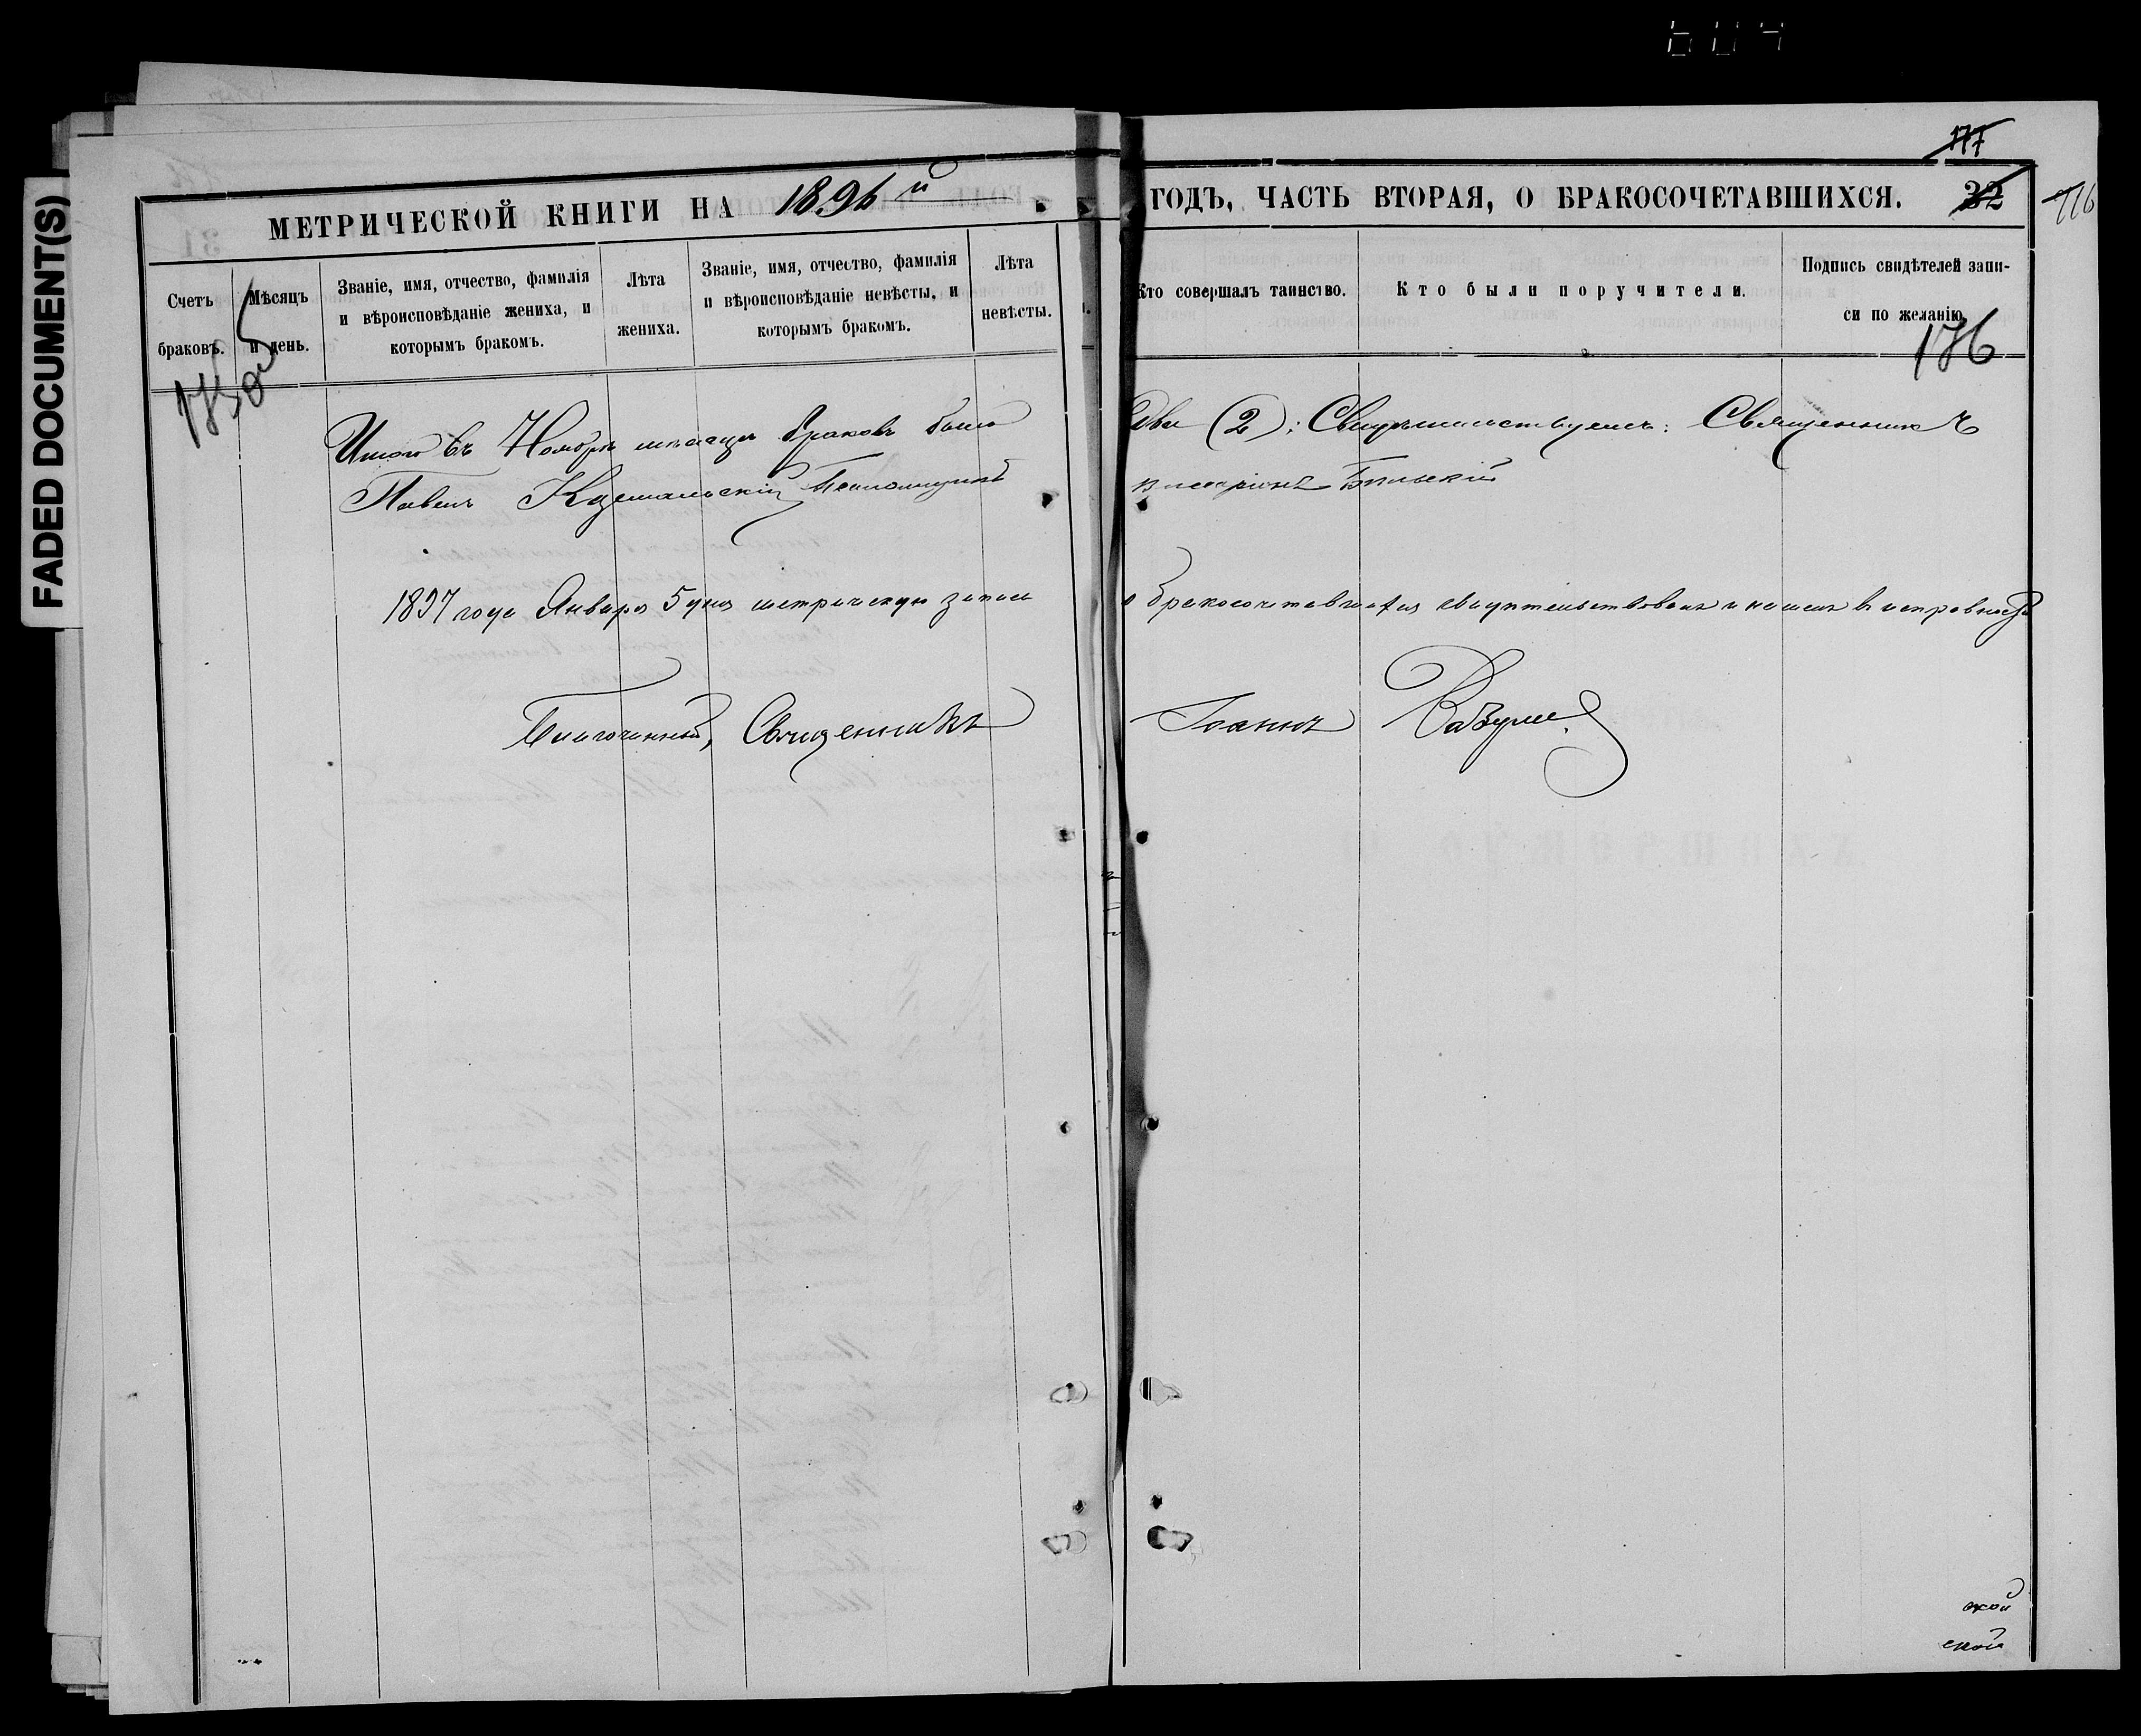 604
FADED DOCUMENT(S)
177
МЕТРИЧЕСКОЙ КНИГИ НА 1896 й ГОДЪ, ЧАСТЬ ВТОРАЯ, О БРАКОСОЧЕТАВШИХСЯ. 32 116
Счетъ браковъ.
Мѣсяцъ и день.
Званіе, имя, отчество, фамилія и вѣроисповѣданіе жениха, и которымъ бракомъ.
Лѣта жениха.
Званіе, имя, отчество, фамилія и вѣроисповѣданіе невѣсты, и которымъ бракомъ.
Лѣта невѣсты.
Кто совершалъ таинство.
Кто были поручители.
Подпись свидѣтелей запи-
си по желанію
176
175 об
Итого въ Ноябрѣ мѣсяцѣ браковъ было два (2): Свидѣтельствуемъ: Священникъ
Павелъ Псаломщикъ Бѣльскій
1897 года Января 5 дня метрическую запись о бракосочетавшихся свидѣтельствовалъ и нашелъ в исправности
Благочинный, Священникъ Іоаннъ
ской
ской